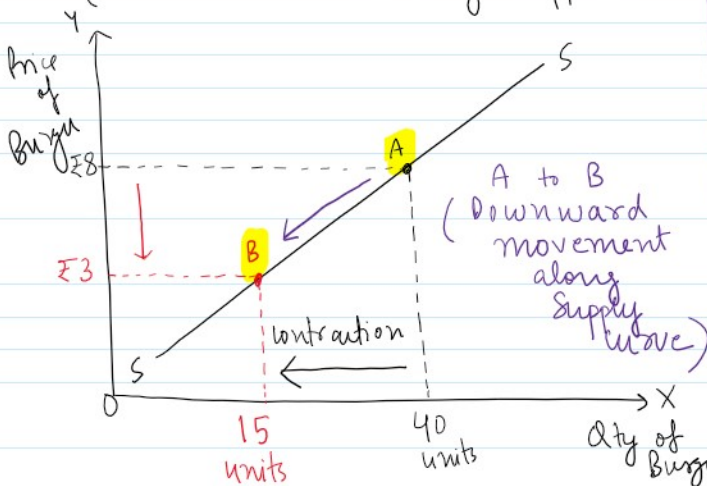 Y
Price
of
Burger
₹8
A
S
A to B
(Downward
movement
along
Supply
Curve)
B
₹3
Contraction
S
O
X
15
units
40
units
Qty of
Burge